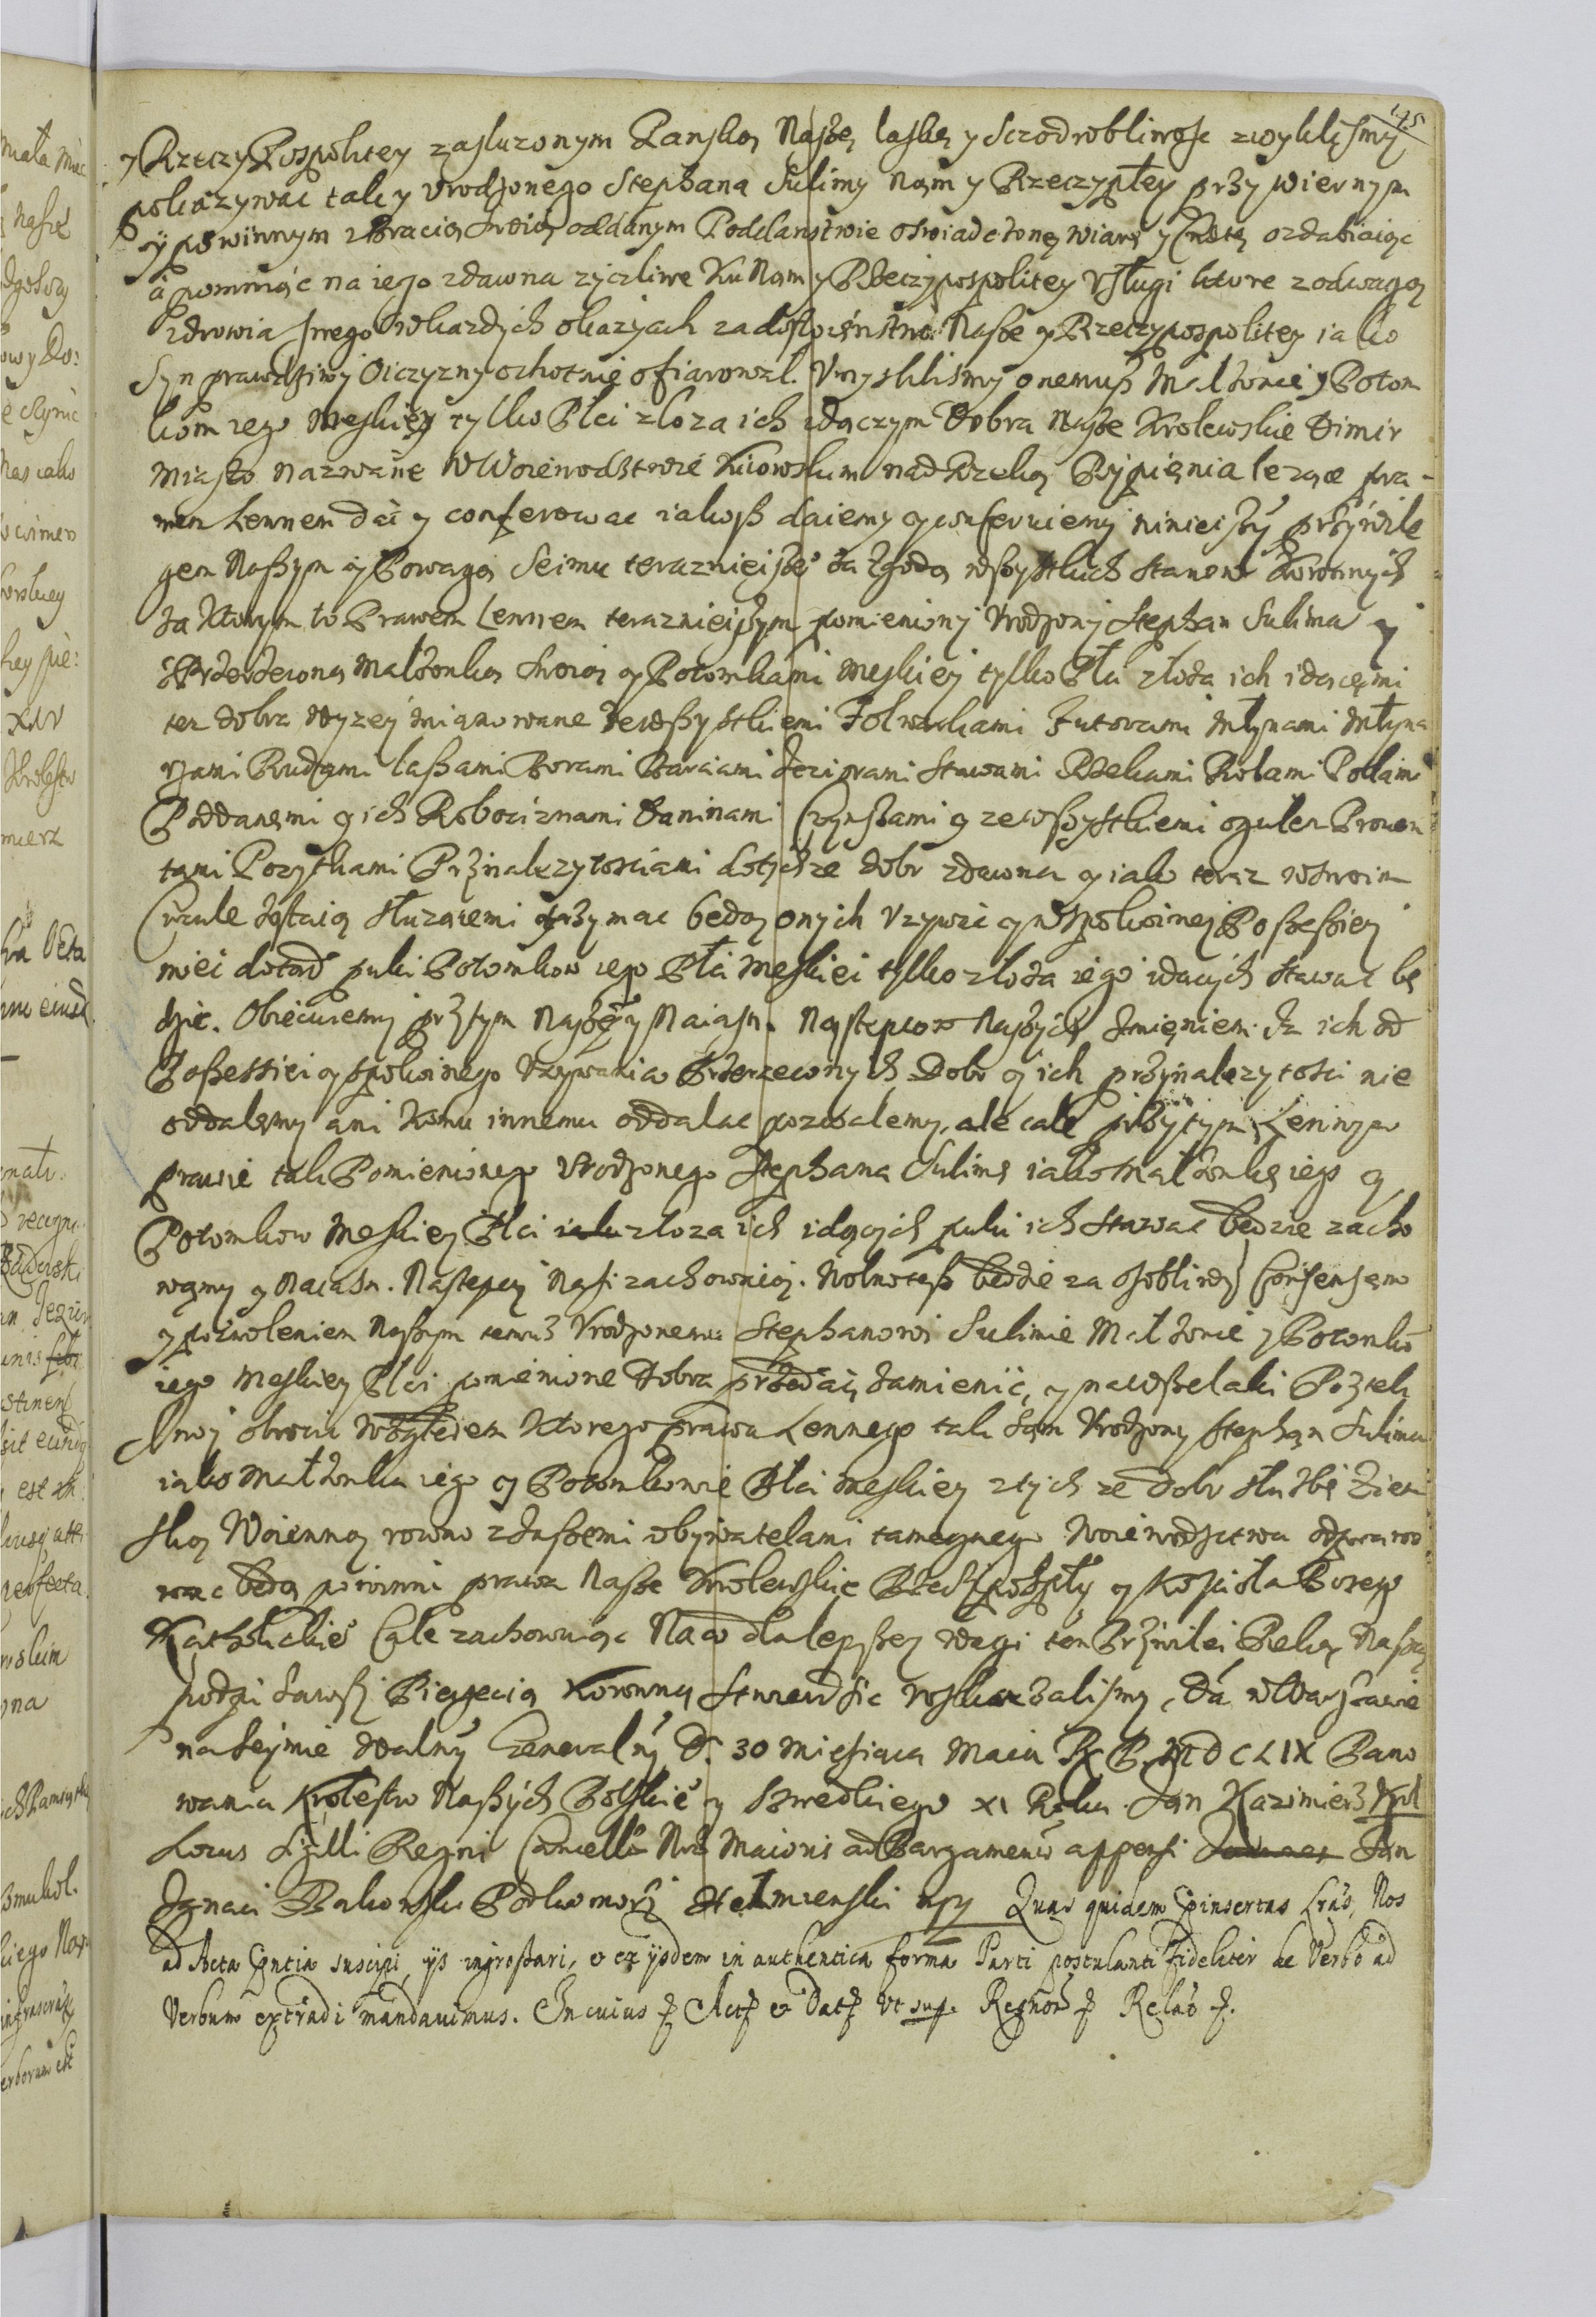 175
y Rzeczy Pospolitey zasluzonym Panską Naszę laskę y Sczodrobliwosc zwyklismy
pokazywac tak y Vrodzonego Stephana Sulimy nąm y Rzeczyptey przy wiernym
y powinnym z Bracią swoią oddanym Poddanstwie oswiadczoną wiarę y Cnotę ozdabiaiąc
a pomniąc na iego zdawna zyczliwe Ku Nąm y Rzeczypospolitey Vsługi ktore z odwagą
zdrowia swego w kazdych okazyach za dostoienstwo Nasze y Rzeczypospolitey iako
Syn prawdziwy Oiczyzny ochotnie ofiarował. Vmyslilismy onemuß Małzonce y Potom
kom iego Meskiey tylko Płci z loza ich idączym Dobra Nasze Krolewskie Dimir
Miasto nazwane w Woiewodztwie Kiiowskim nad Rzeką leząc pra-
wem Lennem dac y conferowac iakosz daiemy y conferuiemy ninieiszy przywile
gem Naszym y Powagą Seimu teraznieisze za Zgodą wszystkich Stanow Koronnych
Za Ktorym to Prawem Lennem teraznieiszym pomieniony Vrodzony Stephan Sulima y
z Rzeczoną Małzonką Swoią y Potomkami Meskiey tylko Płci z loza ich idącemi
te dobra wyzey mianowane ze wszystkiemi Folwarkami Futorami Młynami Młyna
rzami Rudami lassami Borami Barciami Jeziorami Stawami Rzekami Rolami Polami
Poddanemi y ich Robociznami Daninami Czynszami y ze wszystkiemi ogulem Prowen
tami Pozytkami Przinalezytosciami do tychze dobr zdawna y iako teraz w swoim
Czule zostaią słuzacemi trzymac będą onych Vzywac y w spokoiney Possessiey
miec dotad puki Potomkow iego Płci Meskiei tylko z loza iego idacych stawac bę
dzie. Obiecuiemy przytym Naszę y Naiasn. Nastepcow Naszych Imieniem. Iz ich od
Possessiei y spokoinego Vzywania Rzeczonych Dobr y ich przynalezytosci nie
oddalemy ani Komu innemu oddalac pozwolemy, ale cale przytym Lennym
prawie tak Pomienionego Vrodzonego Stephana Sulimę iako Małzonkę iego y
Potomkow Meskiey Płci z loza ich idących puki ich stawac bedzie zacho
wamy y Naiasn. Nastepcy Nasi zachowaią. Wolno tesz bedzie za osobliwym Consensem
y pozwoleniem Naszym temuz Vrodzonemu Stephanowi Sulimie Małzonce y Potomkō
iego Meskiey Płci pomienione Dobra przedać, zamienić, y na wszelaki Pozytek
swoy obrocić Względem Ktorego prawa Lennego tak sąm Vrodzony Stephan Sulima
iako Małzonka iego y Potomkowie Płci Meskiey z tych ze Dobr słuzbę Ziem
ską Woienną rowno z Inszemi obywatelami tamecznego Woiewodztwa odprawo
wac będą powinni prawa Nasze Krolewskie Rzeczypospty y Koscioła Bozego
Katholickie Cale zachowuiąc Na co dla lepszey wagi ten Przywilei Ręką Naszą
podpisawszy Pieczęcią Koronną Stwierdzic roskazalismy. Dā w Warszawie
na Seymie walny Generalny D. 30 Miesiąca Maia R. P. MDCLIX Pano
wania Krolestw Naszych Polskie y Szwedzkiego XI Roku. Jan Kazimierz Krol
Locus Sigilli Regni Cancellā Maioris ad Pargamenū appensi Jan
Ignaci Bakowski Podkomorzi Chelmienski mp Quas quidem pinsertas Lrās, Nos
ad Acta pntia suscipi, ijs ingrossari, et ex ijsdem in authentica forma Parti postulanti fideliter de Verbo ad
Verbum extradi mandauimus. In cuius Act et Dat Vt sup. Regnor Relāō